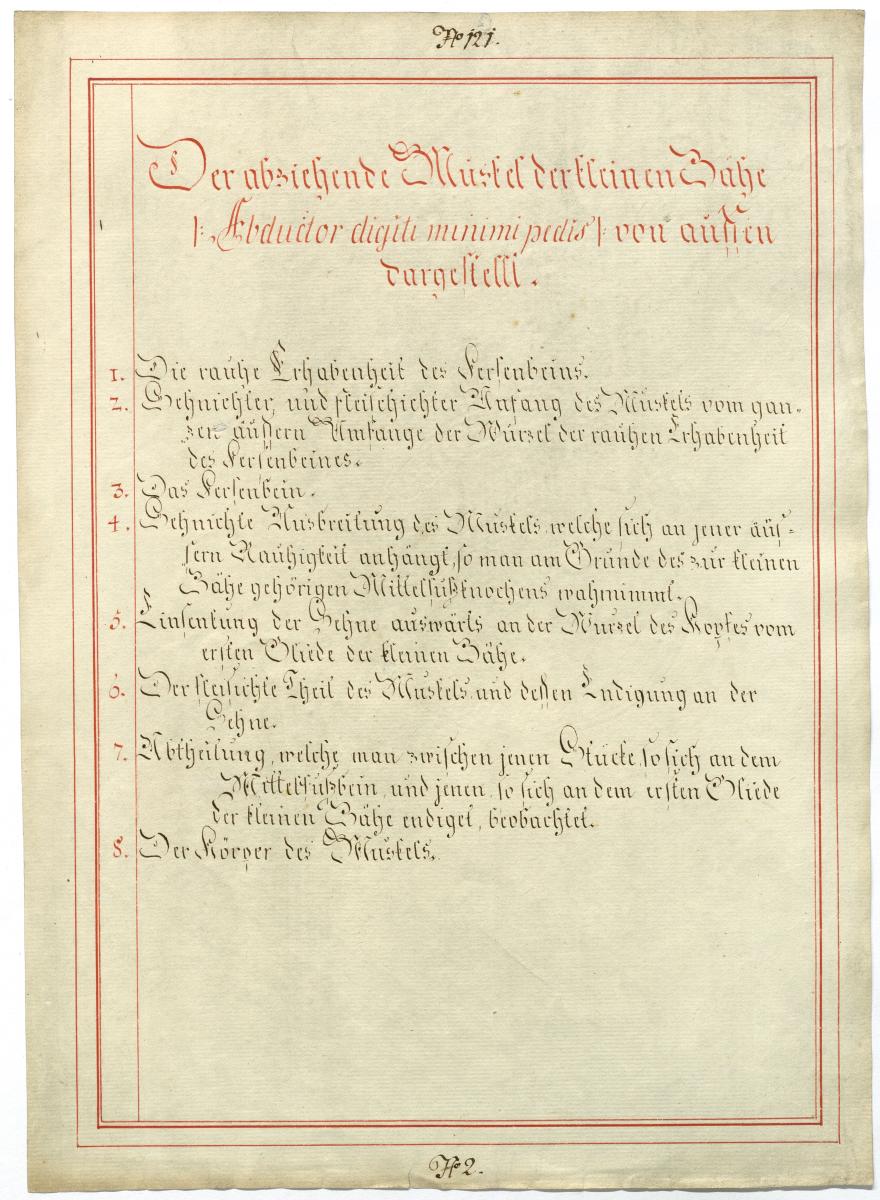 No 121.
Der abziehende Muskel der kleinen Zähe
|: Abductor digiti minimi pedis :| von aussen
dargestellt.
1. Die rauhe Erhabenheit des Fersenbeins.
2. Sehnichter, und fleischichter Anfang des Muskels vom gan-
zen äussern Umfange der Wurzel der rauhen Erhabenheit
des Fersenbeines.
3. Das Fersenbein.
4. Sehnichte Ausbreitung des Muskels, welche sich an jener äus-
sern Rauhigkeit anhängt, so man am Grunde des zur kleinen
Zähe gehörigen Mittelfußknochens wahrnimmt.
5. Einsenkung der Sehne auswärts an der Wurzel des Kopfes vom
ersten Gliede der kleinen Zähe.
6. Der fleisichte Theil des Muskels und dessen Endigung an der
Sehne.
7. Abtheilung, welche man zwischen jenen Stücke, so sich an dem
Mittelfußbein, und jenen, so sich an dem ersten Gliede
der kleinen Zähe endiget, beobachtet.
8. Der Körper des Muskels.
No 2.